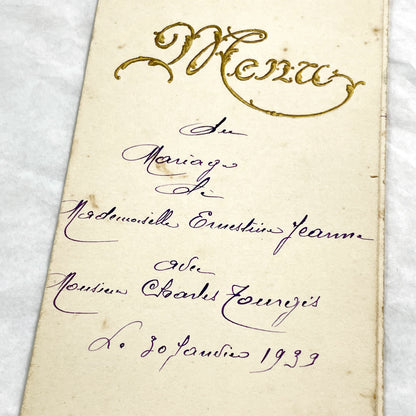 Menu
du
Mariage
de
Mademoiselle Ernestine Jeanne
avec
Monsieur Charles Tourgis
Le 30 Janvier 1933